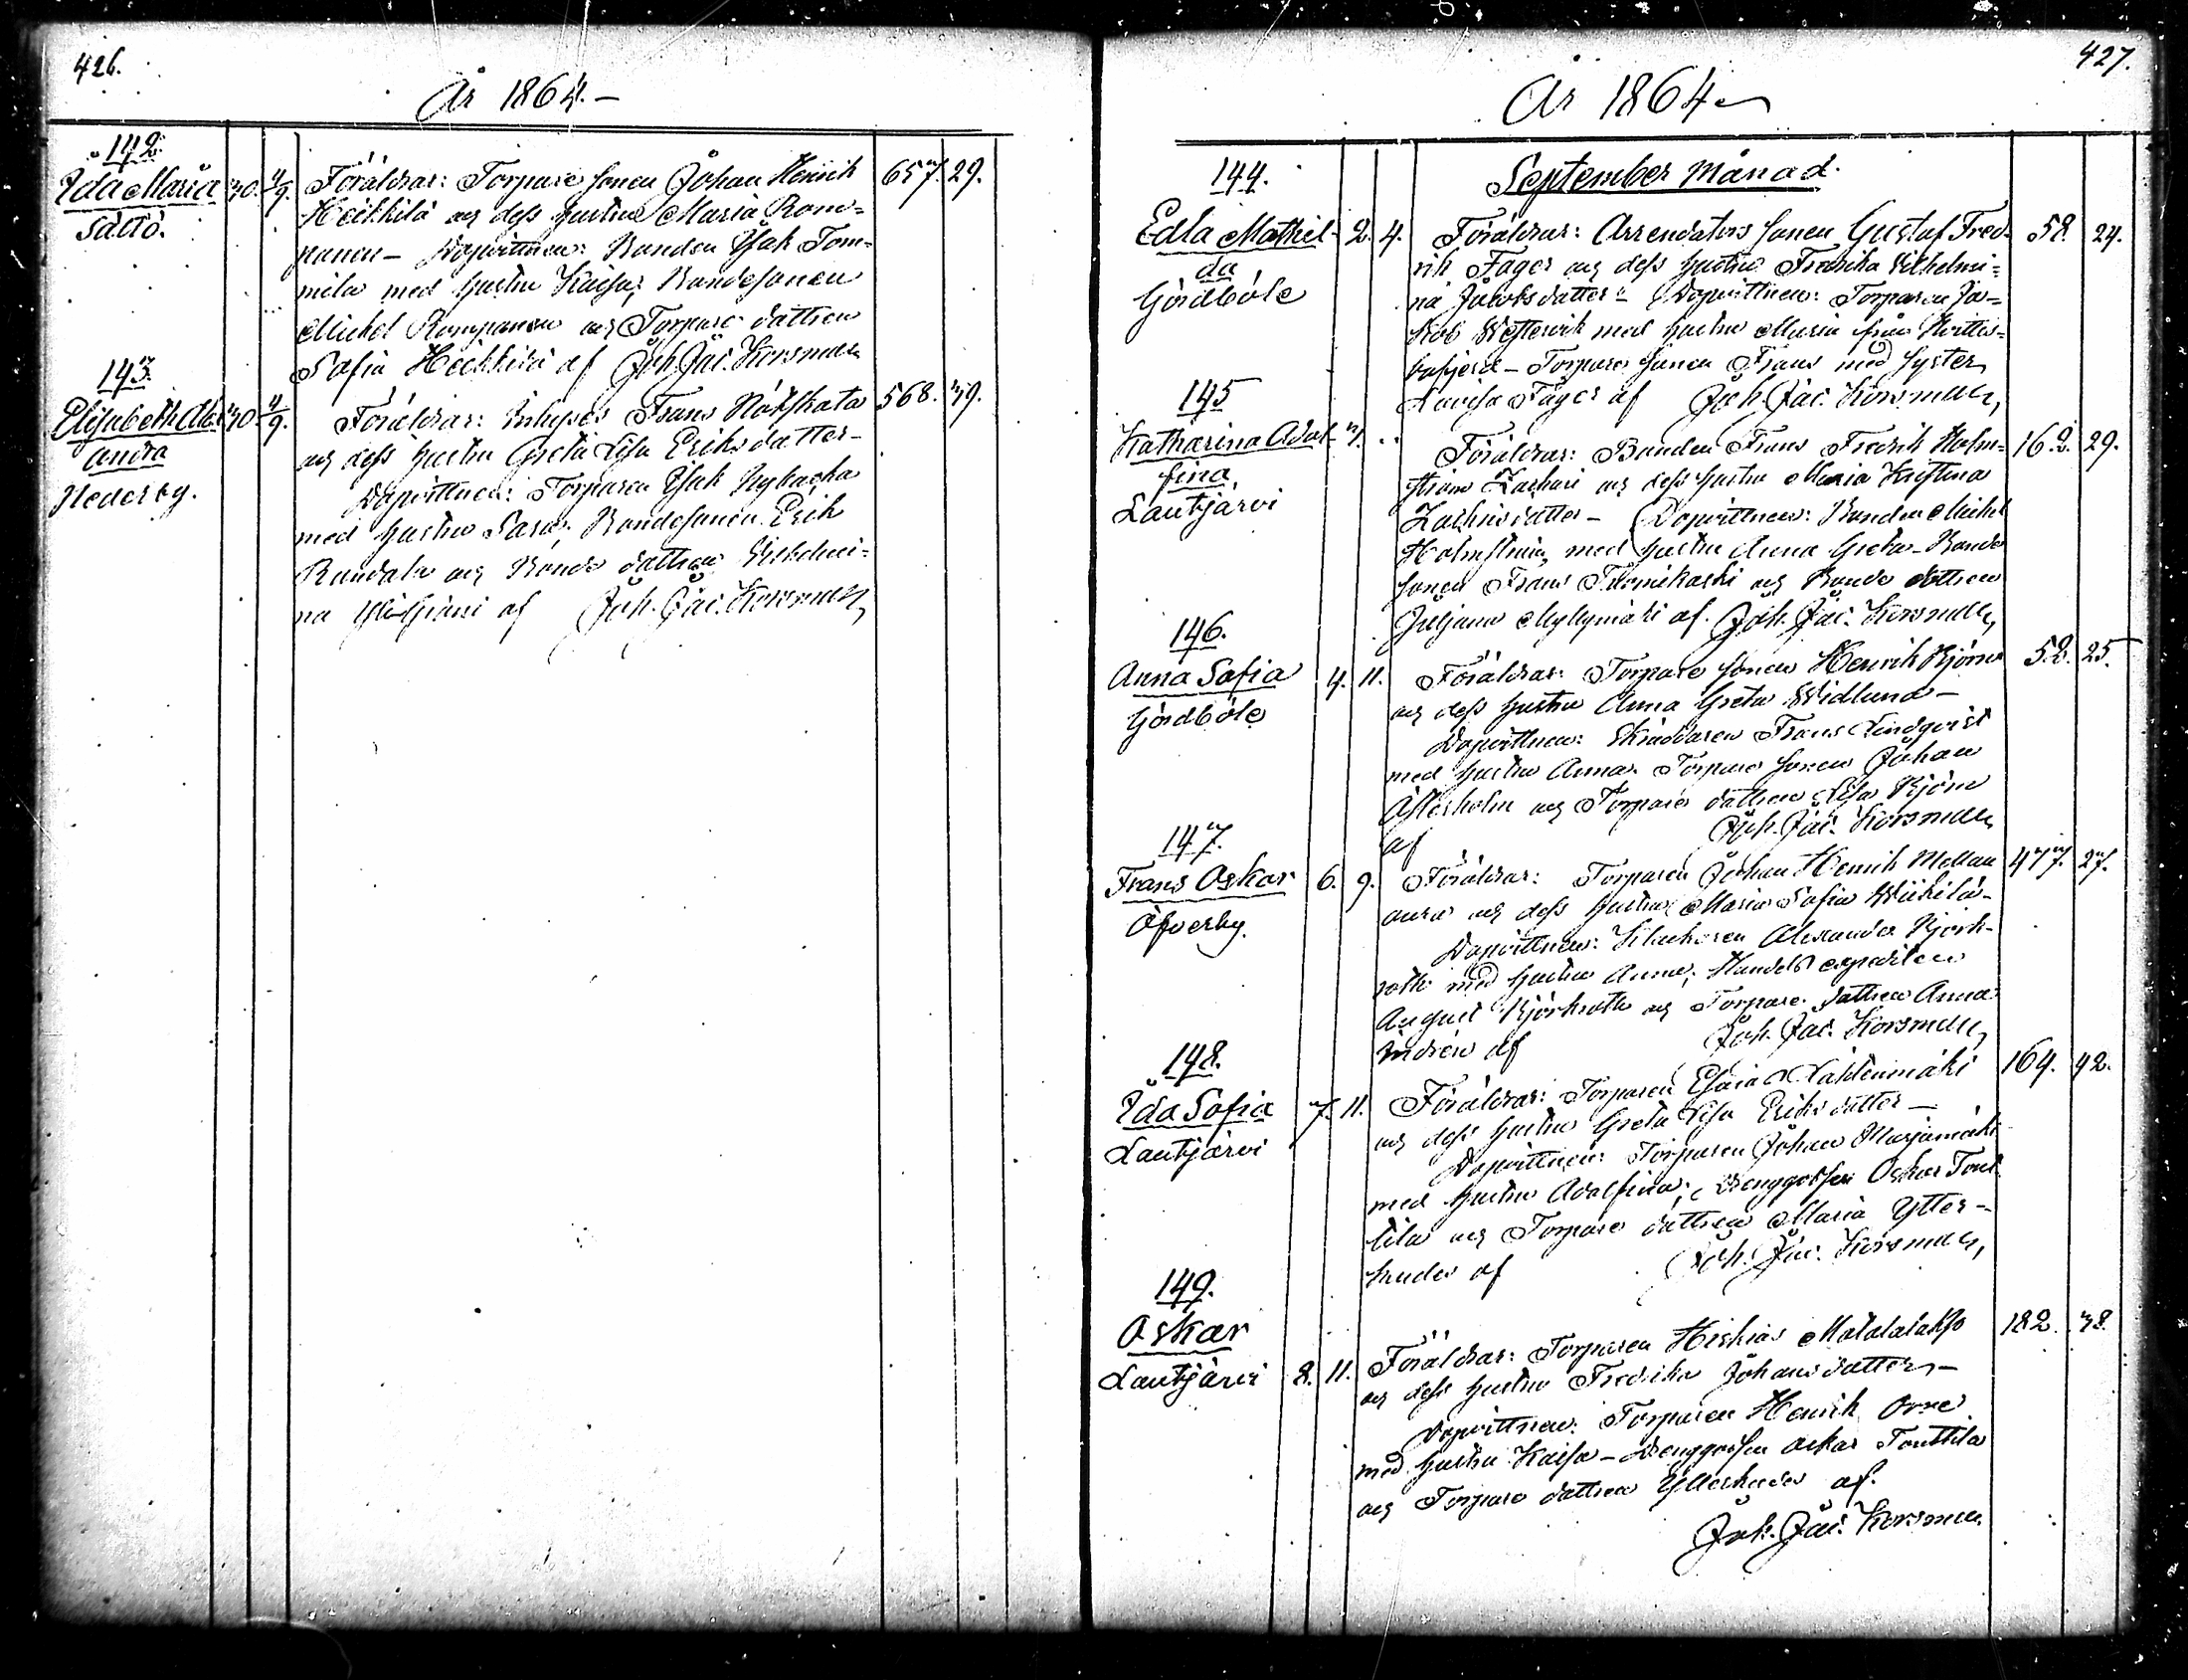 426.
År 1864.—
142.
Ida Maria 30. 4/9.
Sättö.
Föräldrar: Torpare sonen Johan Henrik 657. 29.
Heikkilä och dess hustru Maria Rom=
panen — Dopvittnen: Bonden Isak Tom=
mila med hustru Kaisa; Bondesonen
Michel Rompanen och Torpare dottren
Sofia Heikkilä af Joh. Jac. Korsman
143.
Elisabeth Alex 30 4/9.
andra
Nederby.
Föräldrar: Inhyses Frans 568. 39.
och dess hustru Greta Lisa Eriksdatter—
Dopvittnen: Torparen Isak Nybacka
med hustru Sara. Bondesonen Erik
Randala och Bonde dattren Vilhelmi=
na af Joh. Jac. Korsman
427.
År 1864
September Månad.
144.
Edla Mathil- 2. 4.
da
Gördböle
Föräldrar: Arrendators sonen Gustaf Fred- 58. 24.
rik Fager och dess hustru Fredrika Vilhelmi=
na Jakobsdatter — Dopvittnen: Torparen Ja=
kob Westervik med hustru Maria från
— Torpare sonen Frans med syster
Lovisa Fager af Joh. Jac. Korsman
145
Katharina Adol- 7. ..
fina
Lautjärvi
Föräldrar: Bonden Frans Fredrik Holm= 162. 29.
ström Zachari och dess hustru Maria Kristina
Zachrisdatter — Dopvittnen: Bonden Michel
Holmström, med hustru Anna Greta — Bonde
sonen Frans och Bonde dottren
Juljana Myllymäki af. Joh. Jac. Korsman
146.
Anna Sofia 4. 11.
Gördböle
Föräldrar: Torpare sonen Henrik Björn 52. 25.
och dess hustru Anna Greta Widlund—
Dopvittnen: Skräddaren Frans Lindqvist
med hustru Anna. Torpare sonen Johan
Österholm och Torpare dattren Lisa Björn
af Joh. Jac. Korsman
147.
Frans Oskar 6. 9.
Öfverby.
Föräldrar: Torparen Johan Henrik Mellan 477. 27.
och dess hustru Maria Sofia Wiikilä—
Dopvittnen: Klockaren Alexander Björk-
roth med hustru Anna; Handels expediten
August Björkroth och Torpare dattren Anna
af Joh. Jac. Korsman
148.
Ida Sofia 7. 11.
Lautjärvi
Föräldrar: Torparen Esaias Lähteenmäki 164. 42.
och dess hustru Greta Lisa Eriksdatter —
Dopvittnen: Torparen Johan Marjamäki
med hustru Adolfina; Drenggossen Oskar Tont
tila och Torpare dattren Maria Ytter-
af Joh. Jac. Korsman
149.
Oskar
Lautjärvi 8. 11.
Föräldrar: Torparen Hiskias Matalalakso 182. 38.
och dess hustru Fredrika Johansdatter —
Dopvittnen: Torparen Henrik Orre
med hustru Kaisa — Drenggossen Oskar Tonttila
och Torpare dattren af.
Joh. Jac. Korsman